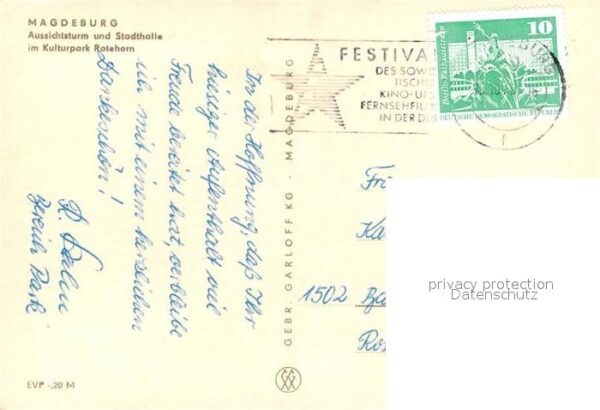 MAGDEBURG
Aussichtsturm und Stadthalle
im Kulturpark Rotehorn
In der Hoffnung, daß Ihr
hiesiger Aufenthalt viel
Freude bereitet hat, verbleibe
ich mit einem herzlichen
Dankeschön!
Bereich Park
EVP -,20 M
GEBR. GARLOFF KG · MAGDEBURG
FESTIVA
DES SOW
TISCHE
KINO-U
FERNSEHFIL
IN DER D
10
Berlin, Rathausstraße
DEUTSCHE DEMOKRATISCHE REPUBLIK
f
Fr
Ka
1502
privacy protection
Datenschutz